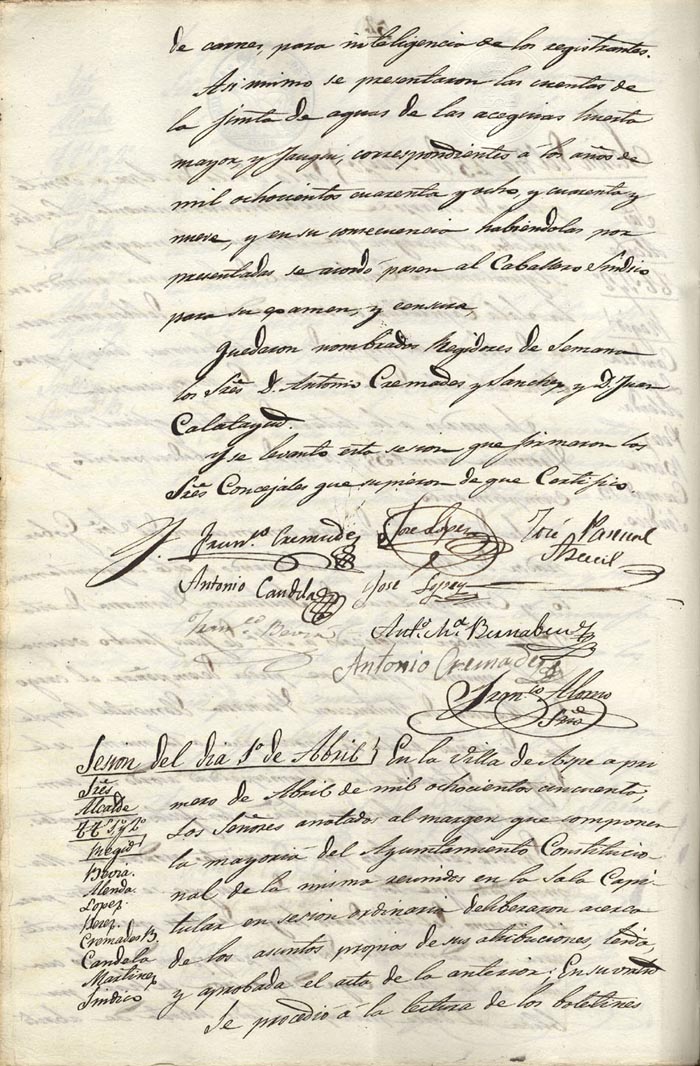 de carnes, para inteligencia de los registrantes.
Asi mismo se presentaron las cuentas de
la Junta de aguas de las acequias huerta
mayor, y Fauquí, correspondientes á los años de
mil ochocientos cuarenta y ocho, y cuarenta y
nueve, y en su consecuencia habiéndolas por
presentadas se acordó pasen al Caballero Síndico
para su examen, y censura,
Quedaron nombrados Regidores de Semana
los Sres D. Antonio Cremades y Sanchez, y D. Juan
Calatayud.
Y se levantó esta sesion que firmaron los
Sres Concejales que supieron de que Certifico.
Fran.co Cremades
Jose Lopez
José Pascual
Antonio Candela
Jose
Fran.co Bevia
Ant.o M.a Bernabeu
Antonio Cremades
Fran.co Alonso
Srio
Sesion del dia 1º de Abril
En la Villa de Aspe a pri
Sres
Alcalde
tt.s 1º y 2º
Regid.
Bevia.
Menda.
Lopez.
Perez.
Cremades B.
Candela
Martinez
Sindico
mero de Abril de mil ochocientos cincuenta,
Los Señores anotados al margen que componen
la mayoría del Ayuntamiento Constitucio
nal de la misma reunidos en la Sala Capi
tular en sesion ordinaria deliberaron acerca
de los asuntos propios de sus atribuciones, leida,
y aprobada el acta de la anterior: En su virtud
Se procedió á la lectura de los boletines